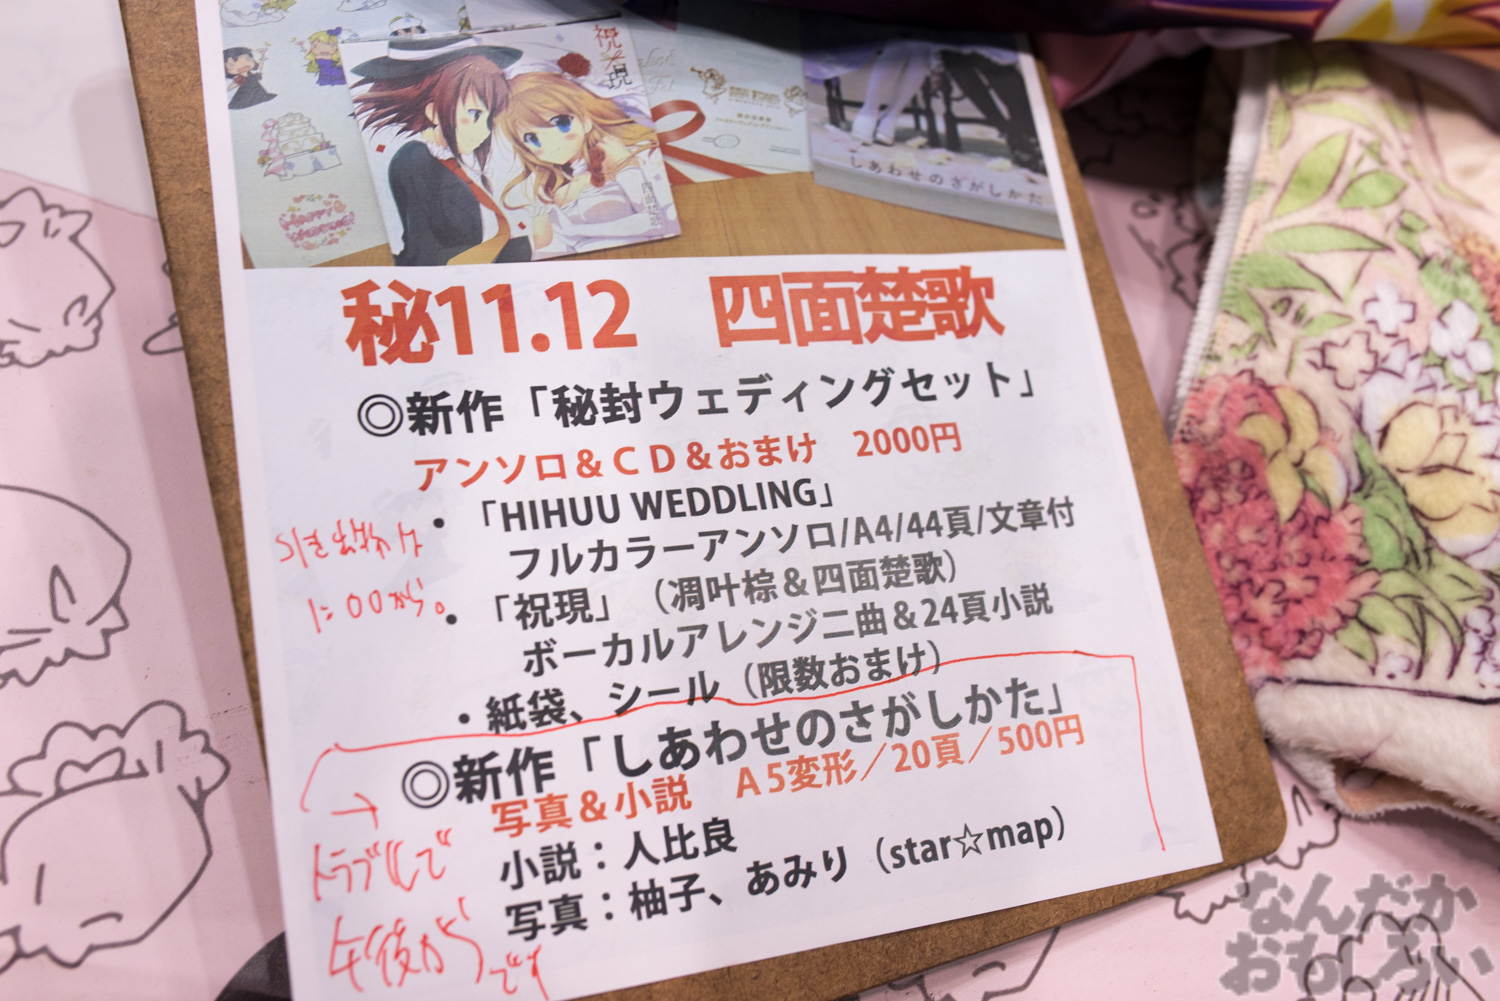 祝現
四面楚歌
しあわせのさがしかた
秘11.12 四面楚歌
◎新作「秘封ウェディングセット」
アンソロ＆ＣＤ＆おまけ 2000円
・「HIHUU WEDDLING」
フルカラーアンソロ/A4/44頁/文章付
・「祝現」（凋叶棕＆四面楚歌）
ボーカルアレンジ二曲＆24頁小説
・紙袋、シール（限数おまけ）
引き出物は
12:00から。
◎新作「しあわせのさがしかた」
写真＆小説 Ａ5変形／20頁／500円
小説：人比良
写真：柚子、あみり（star☆map）
→
トラブルで
午後から
です
なんだか
おもしろい